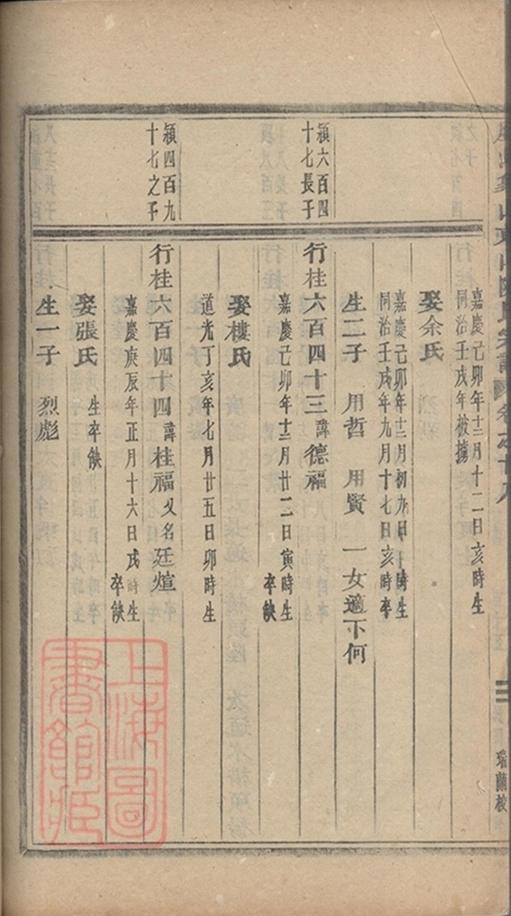 嘉慶己卯年十二月十一日亥時生
同治壬戌年被擄
娶余氏
嘉慶己卯年十二月初九日子時生
同治壬戌年九月十七日亥時卒
生二子 用哲 用賢 一女適下何
頴六百四
十七長子
行桂六百四十三諱德福
嘉慶己卯年十二月二十二日寅時生
卒缺
娶樓氏
道光丁亥年七月廿五日卯時生
頴四百九
十七之子
行桂六百四十四諱桂福又名廷煊
嘉慶庚辰年正月十六日戌時生
卒缺
娶張氏 生卒缺
生一子 烈彪
上海圖
書館藏